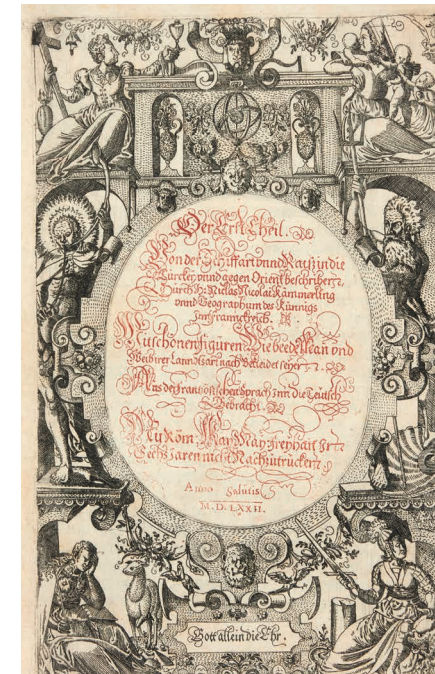 Der Erst Theil.
Von der Schiffart vnnd Raisz in die
Türckey vnnd gegen Orient beschriben
Durch H: Niclas Nicolai Kämmerling
vnnd Geographum des Künnigs
Inn franckreich.
Mit schönen figuren Wie beede Man vnd
Weib irer Landtsart nach Bekleidet seyen
Aus der frantzösischen Sprach Inn die Teutsch
Gebracht.
Mit Röm. Kay: May: freyhait In
Sechs Jaren nicht Nachzutrucken
Anno Salutis
M.D.LXXII.
Gott allein die Ehr.